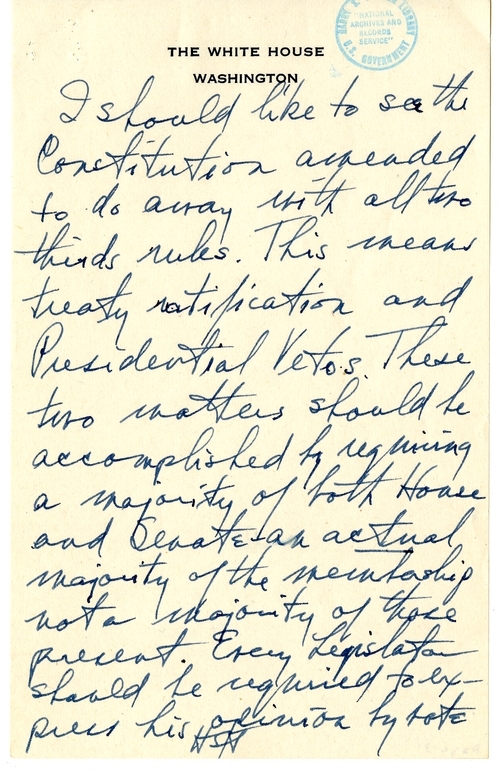 THE WHITE HOUSE
WASHINGTON
"NATIONAL
ARCHIVES AND
RECORDS
SERVICE"
U.S. GOVERNMENT
LIBRARY
I should like to see the
Constitution amended
to do away with all two
thirds rules. This means
treaty ratification and
Presidential Vetos. These
two matters should be
accomplished by requiring
a majority of both House
and Senate - an actual
majority of the membership
not a majority of those
present. Every Legislator
should be required to ex-
press his opinion by vote
HST